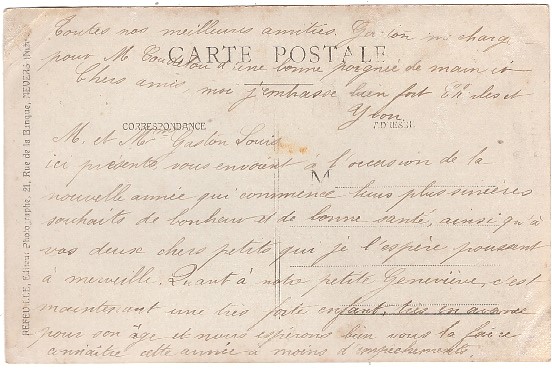 Toutes nos meilleures amitiés. Gaston me charge
pour M. d'une bonne poignée de main et
CARTE POSTALE
Chers amis, moi j'embrasse bien fort et
Yvon.
CORRESPONDANCE
ADRESSE
M. et Mme Gaston Louis
ici présents vous envoient à l'occasion de la
M
nouvelle année qui commence leurs plus sincères
souhaits de bonheur et de bonne santé, ainsi qu'à
vos deux chers petits qui je l'espère poussent
à merveille. Quant à notre petite Geneviève, c'est
maintenant une très forte enfant, très en avance
pour son âge et nous espérons bien vous la faire
connaître cette année à moins d'empêchements.
Éditeur Photographe, 21, Rue de la Banque, NEVERS